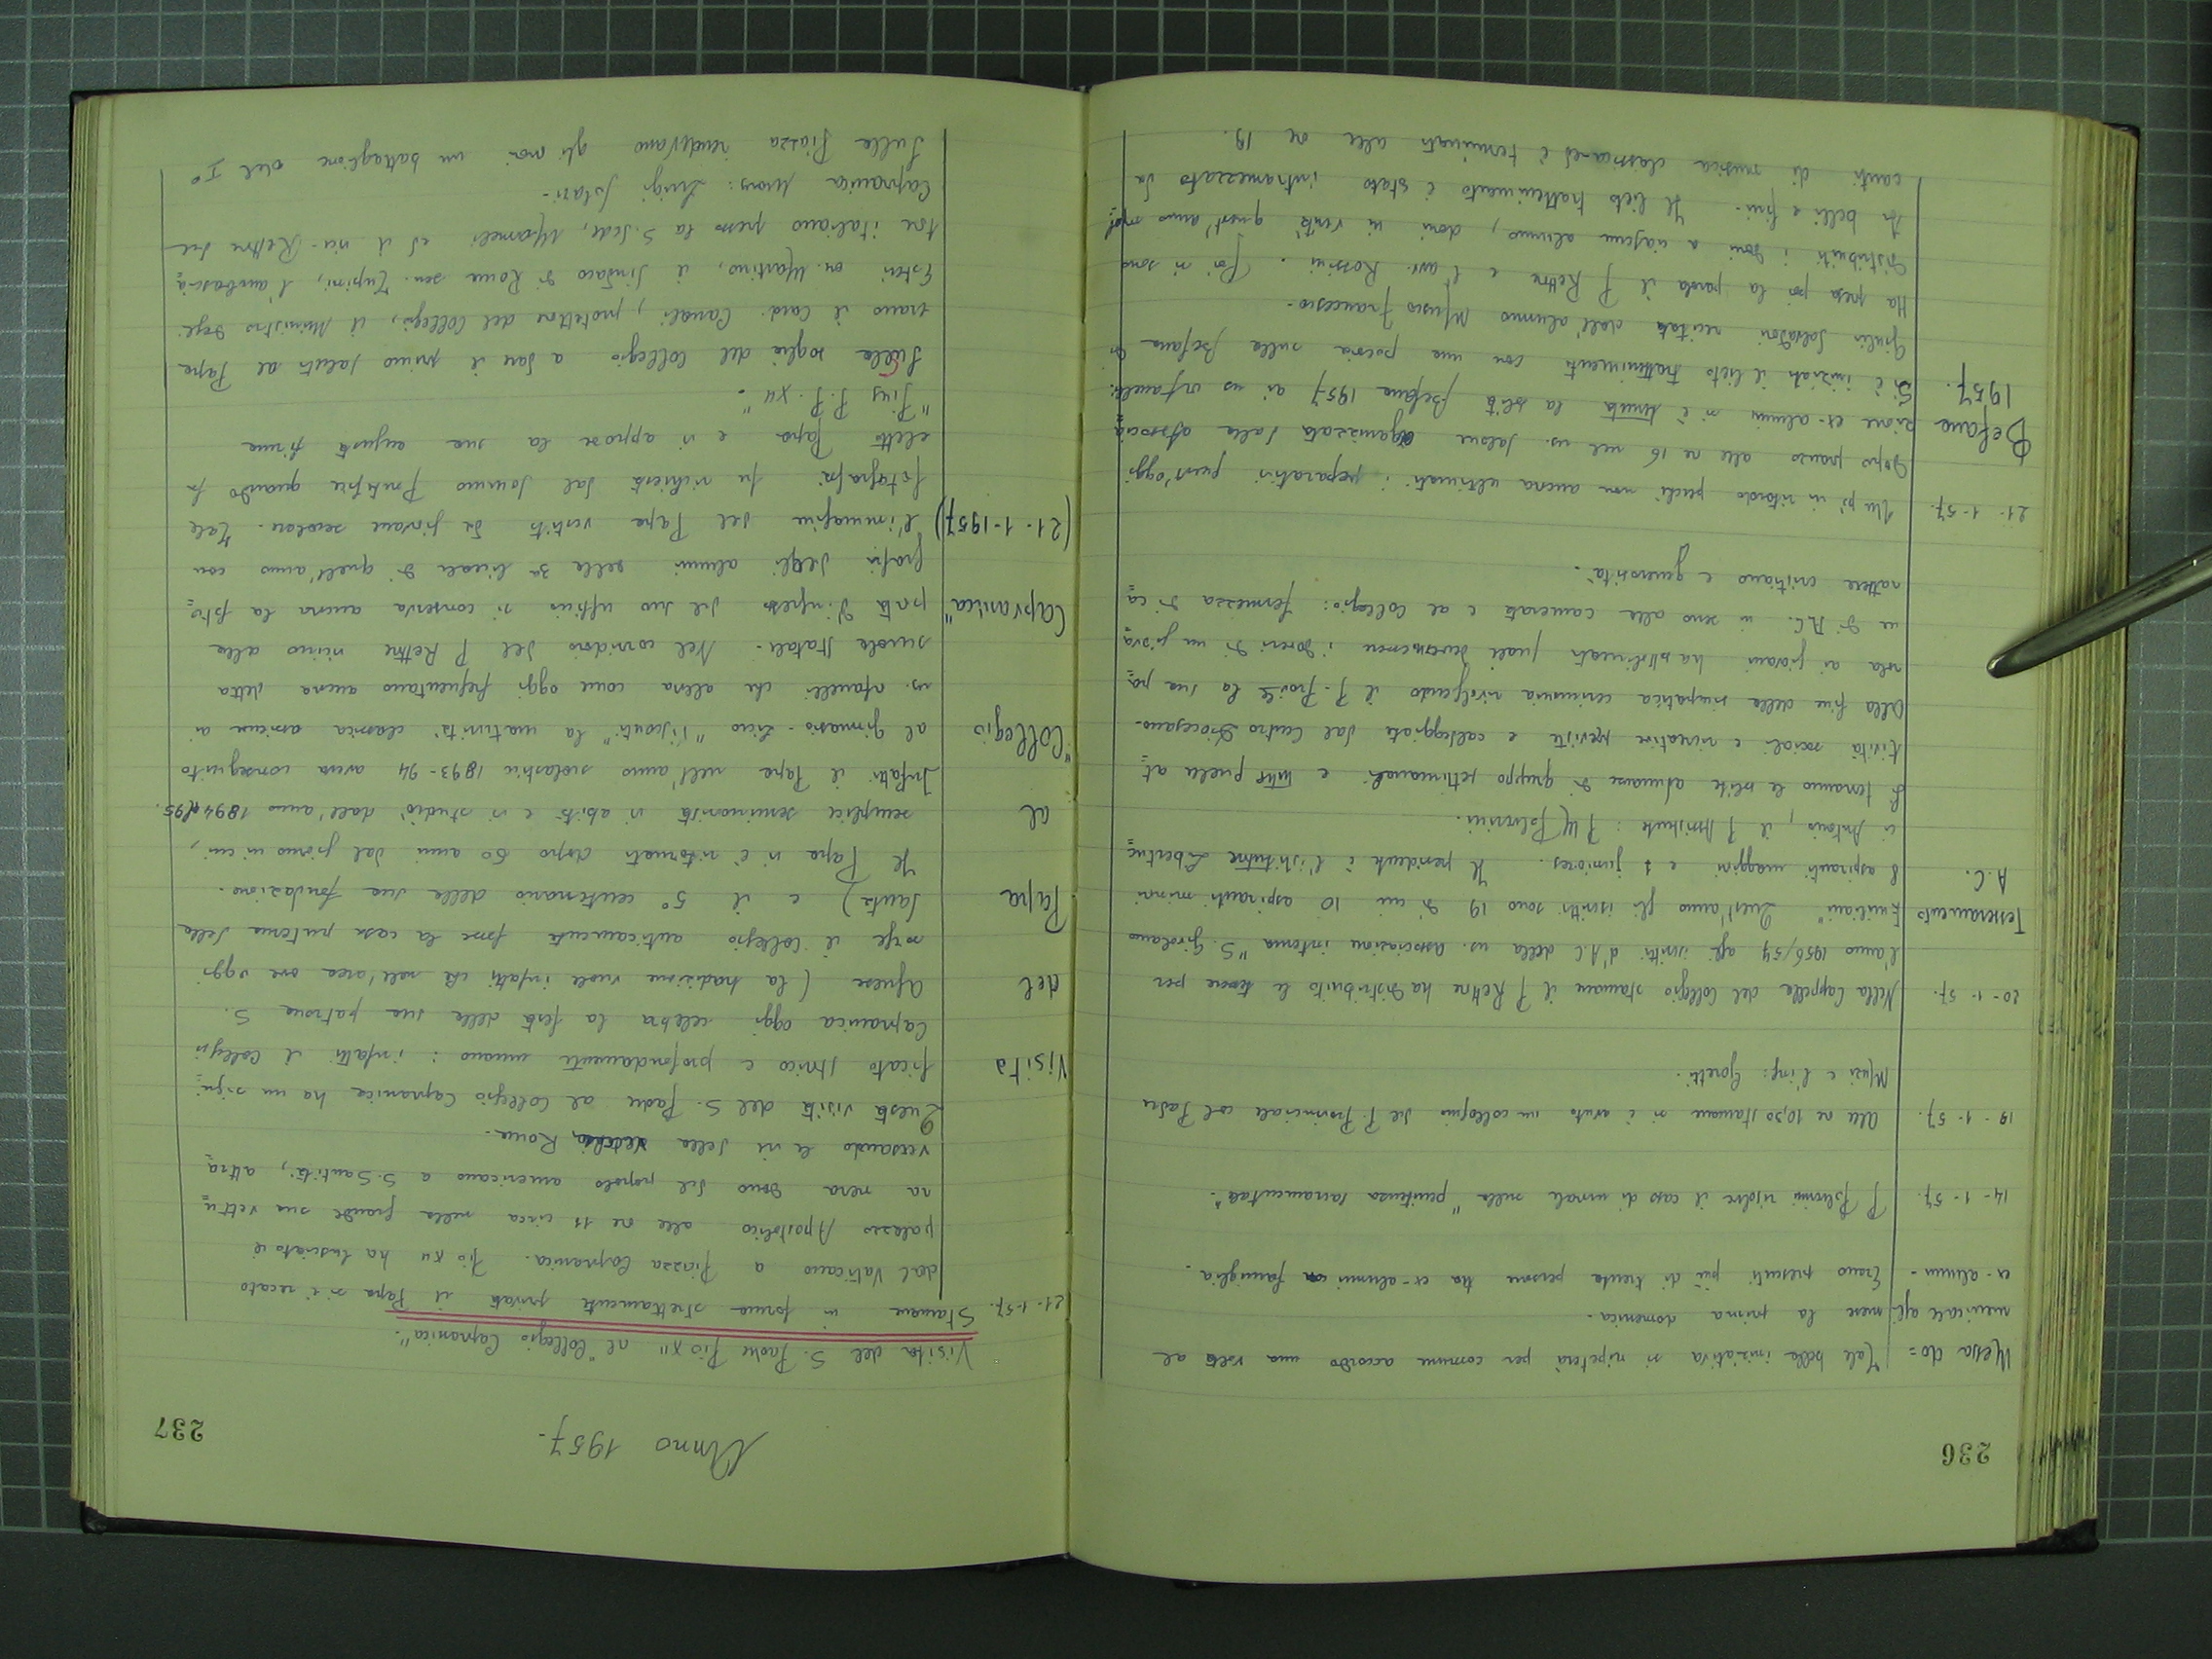 236
Messa do= Tale bella iniziativa si ripeterà per comune accordo una volta al
menicale agli mese la prima domenica.
ex-alunni - Erano presenti più di trenta persone tra ex-alunni e famiglia.
14-1-57. P. Polvarini risolve il caso di morale sulla "penitenza sacramentale".
19-1-57. Alle ore 10,30 stamane si è avuto un colloquio del P. Provinciale col Padre
Muzi e l'ing: Goretti.
20-1-57. Nella Cappella del Collegio stamane il P Rettore ha distribuito le tessere per
l'anno 1956/57 agli iscritti d'A.C della ns. associazione interna "S. Girolamo
Tesseramento Emiliani" Quest'anno gli iscritti sono 19 di cui 10 aspiranti minori
A. C. 8 aspiranti maggiori e 1 juniores. Il presidente è l'istitutore Libertuc=
ci Antonio, il P Assistente: P M Polvarini.
Si terranno le solite adunanze di gruppo settimanali e tutte quelle at=
tività sociali e ricreative previste e caldeggiate dal Centro Diocesano.
Alla fine della simpatica cerimonia rivolgendo il P. Prov.le la sua pa=
rola ai giovani ha sottolineato quali dovessero essere i doveri di un giova=
ne di A.C. in seno alla camerata e al Collegio: fermezza di ca=
rattere cristiano e generosità.
21-1-57. Un pò in ritardo perchè non ancora ultimati i preparativi quest'oggi
dopo pranzo alle ore 16 nel ns. salone organizzata dalla associa=
Befana zione ex-alunni si è tenuta la solita Befana 1957 ai ns orfanelli.
1957. Si è iniziato il lieto trattenimento con una poesia sulla Befana di
Giulio Salvadori recitata dall'alunno Musio Francesco.
Ha preso poi la parola il P Rettore e l'avv. Rossini. Poi si sono
distribuiti i doni a ciascun alunno, doni in verità quest'anno mol=
to belli e fini. Il lieto trattenimento è stato intramezzato da
canti di musica classica ed è terminato alle ore 19.
Anno 1957.
237
Visita del S. Padre Pio XII al "Collegio Capranica".
21-1-57. Stamane in forma strettamente privata il Papa si è recato
dal Vaticano a Piazza Capranica. Pio XII ha lasciato il
palazzo Apostolico alle ore 11 circa nella grande sua vettu=
ra nera dono del popolo americano a S. Santità, attra=
versando le vie della vecchia Roma.
Questa visita del S. Padre al Collegio Capranica ha un signi=
Visita ficato storico e profondamente umano: infatti il Collegio
Capranica oggi celebra la festa della sua patrona S.
del Agnese (la tradizione vuole infatti che nell'area ove oggi
sorge il Collegio anticamente fosse la casa paterna della
Papa Santa) e il 5° centenario della sua fondazione.
Il Papa vi è ritornato dopo 60 anni dal giorno in cui,
al semplice seminarista vi abitò e vi studiò dall'anno 1894 al 95.
Infatti il Papa nell'anno scolastico 1893-94 aveva conseguito
"Collegio al ginnasio-liceo "Visconti" la maturità classica assieme ai
ns. orfanelli che allora come oggi frequentano ancora detta
scuola statale. Nel corridoio del P Rettore vicino alla
Capranica" porta d'ingresso del suo ufficio si conserva ancora la foto=
grafia degli alunni della 3a liceale di quell'anno con
(21-1-1957) l'immagine del Papa vestito da giovane secolare. Tale
fotografia fu richiesta dal Sommo Pontefice quando fu
eletto Papa e vi appose la sua augusta firma
"Pius P. P. XII".
Sulla soglia del Collegio a dare il primo saluto al Papa
erano il Card. Canali, protettore del Collegio, il Ministro degli
Esteri on. Martino, il Sindaco di Roma sen. Tupini, l'ambascia=
tore italiano presso la S. Sede, Mameli ed il vice-Rettore del
Capranica Mons: Luigi
Sulla Piazza rendevano gli onori un battaglione del I°